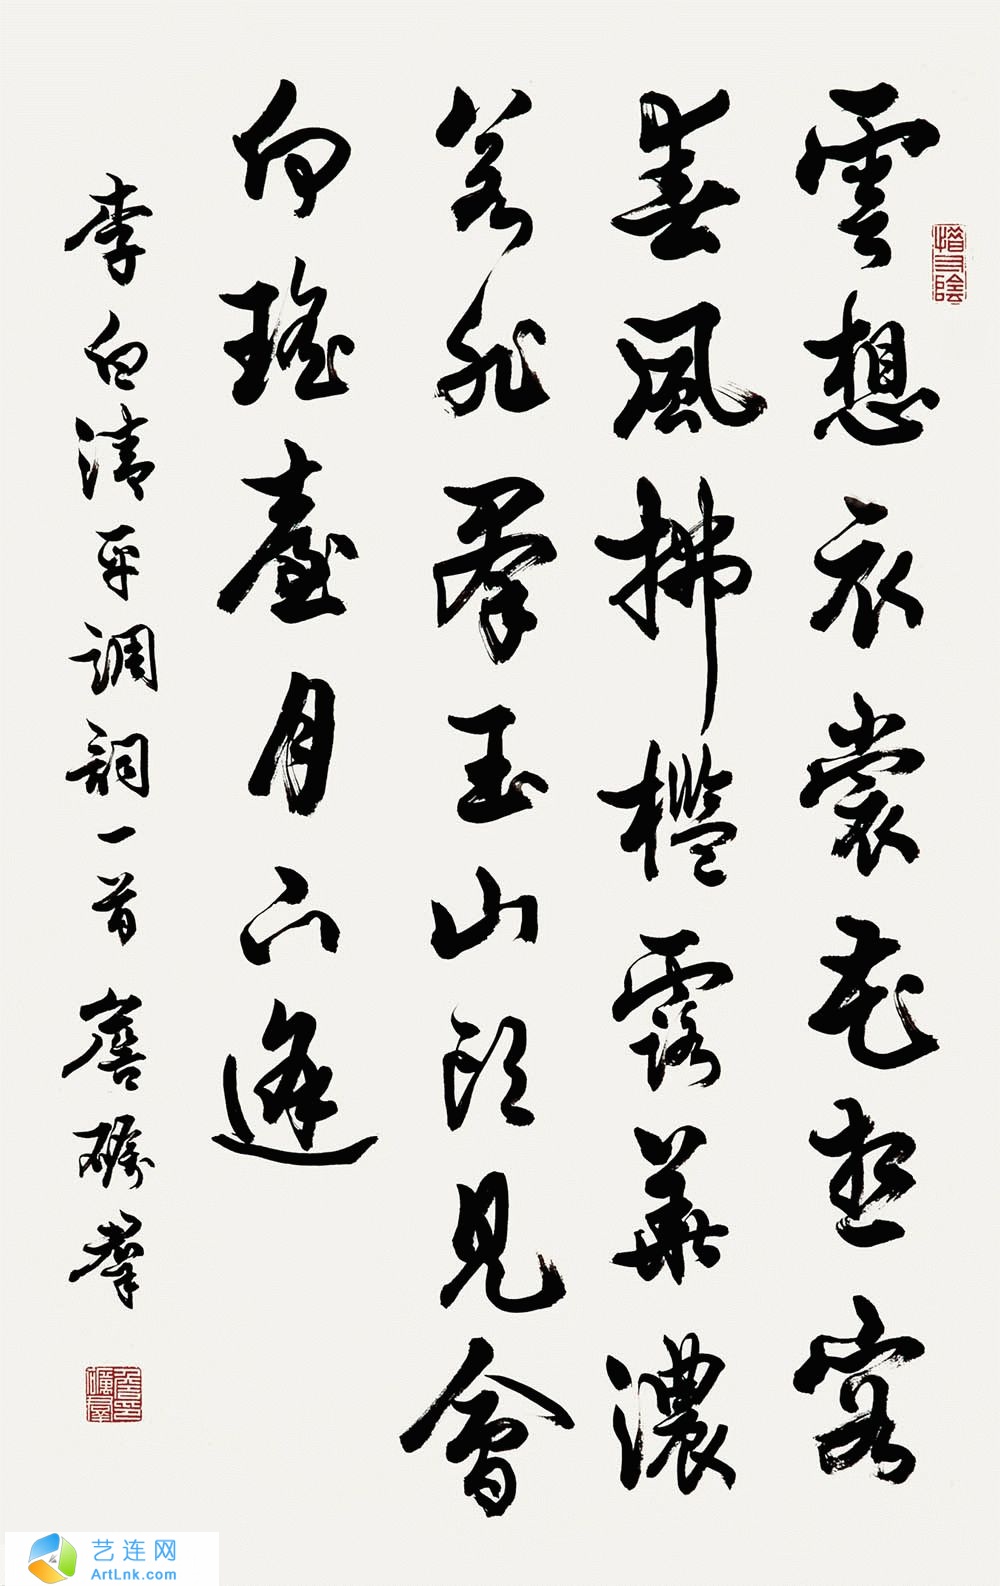 雲想衣裳花想容
春風拂檻露華濃
若非群玉山頭見會
向瑤臺月下逢
李白清平調詞一首 詹礪群
惜分陰
艺连网
ArtLnk.com